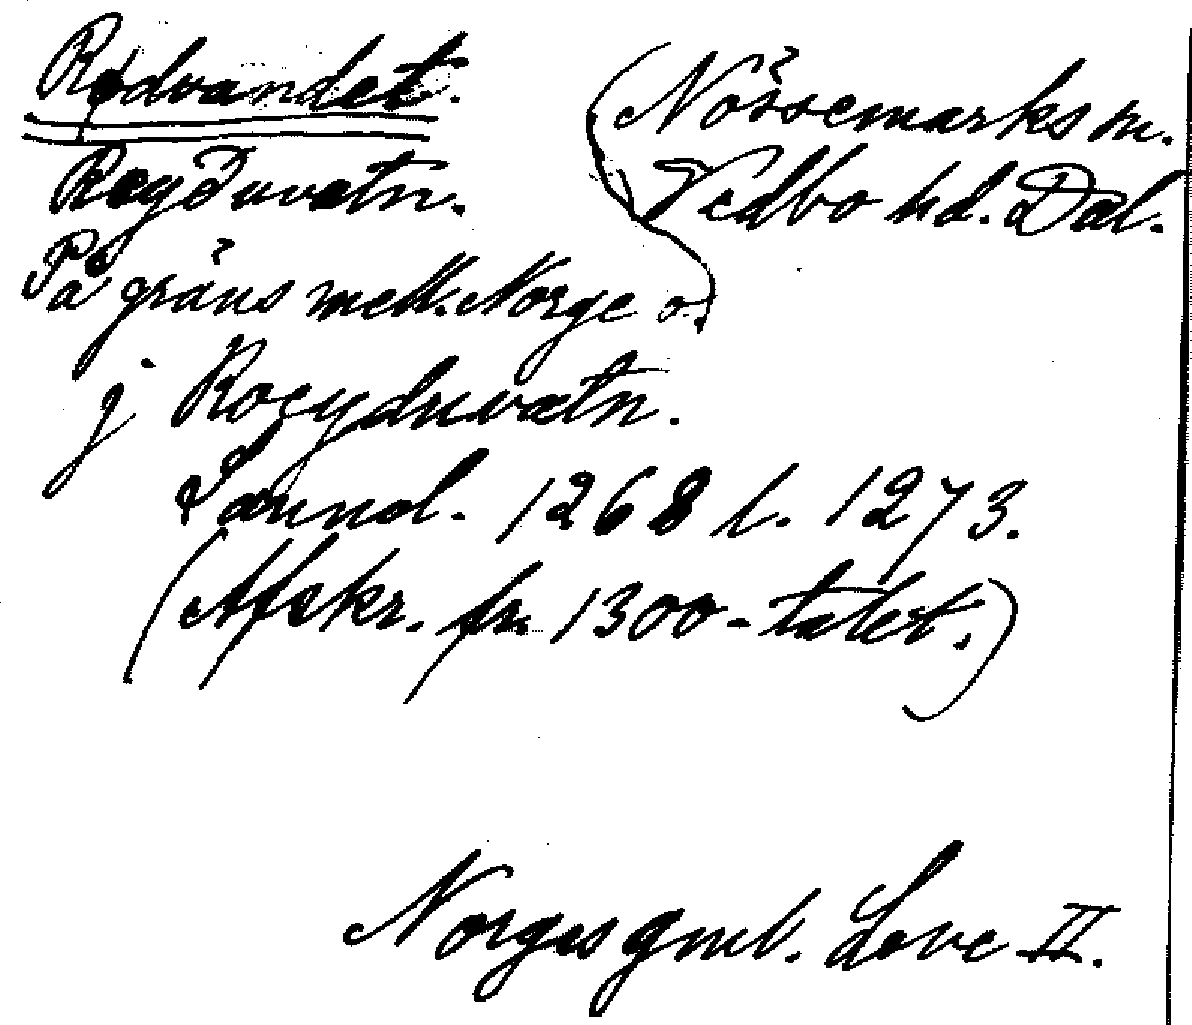 Rødvandet.
(Nössemarks sn.
Vedbo hd. Dal.
Røyðuvatn.
På gräns mell. Norge o.
j Roæyduvatn.
Sannol. 1268 l. 1273.
(Afskr. fr. 1300-talet.)
Norges gml. Love II.